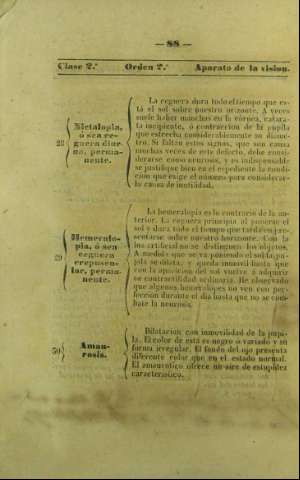 — 88 —
Clase 2.ª Orden 2.º Aparato de la vision.
28
Nictalopia,
ó sea ce-
guera diur-
no, perma-
nente.
La ceguera dura todo el tiempo que es-
tá el sol sobre nuestro orizonte. A veces
suele haber manchas en la córnea, catara-
ta incipiente, ó contraccion de la pupila
que estrecha considerablemente su diáme-
tro. Si faltan estos signos, que son causa
muchas veces de este defecto, debe consi-
derarse como neurosis, y es indispensable
se justifique bien en el espediente la condi-
cion que exige el número para considerar-
la causa de inutilidad.
29
Hemeralo-
pia, ó sea
ceguera
crepuscu-
lar, perma-
nente.
La hemeralopia es lo contrario de la an-
terior. La ceguera principia al ponerse el
sol y dura todo el tiempo que tarda en pre-
sentarse sobre nuestro horizonte. Con la
luz artificial no se distinguen los objetos.
A medida que se va poniendo el sol la pu-
pila se dilata, y queda inmóvil hasta que
con la aparicion del sol vuelve á adquirir
su contractilidad ordinaria. He observado
que algunos hemeralopes no ven con per-
feccion durante el dia hasta que no se com-
bate la neurosis.
30
Amau-
rosis.
Dilatacion con inmovilidad de la pupi-
la. El color de esta es negro ó variado y su
forma irregular. El fondo del ojo presenta
diferente color que en el estado normal.
El amaurótico ofrece un aire de estupidez
característico.